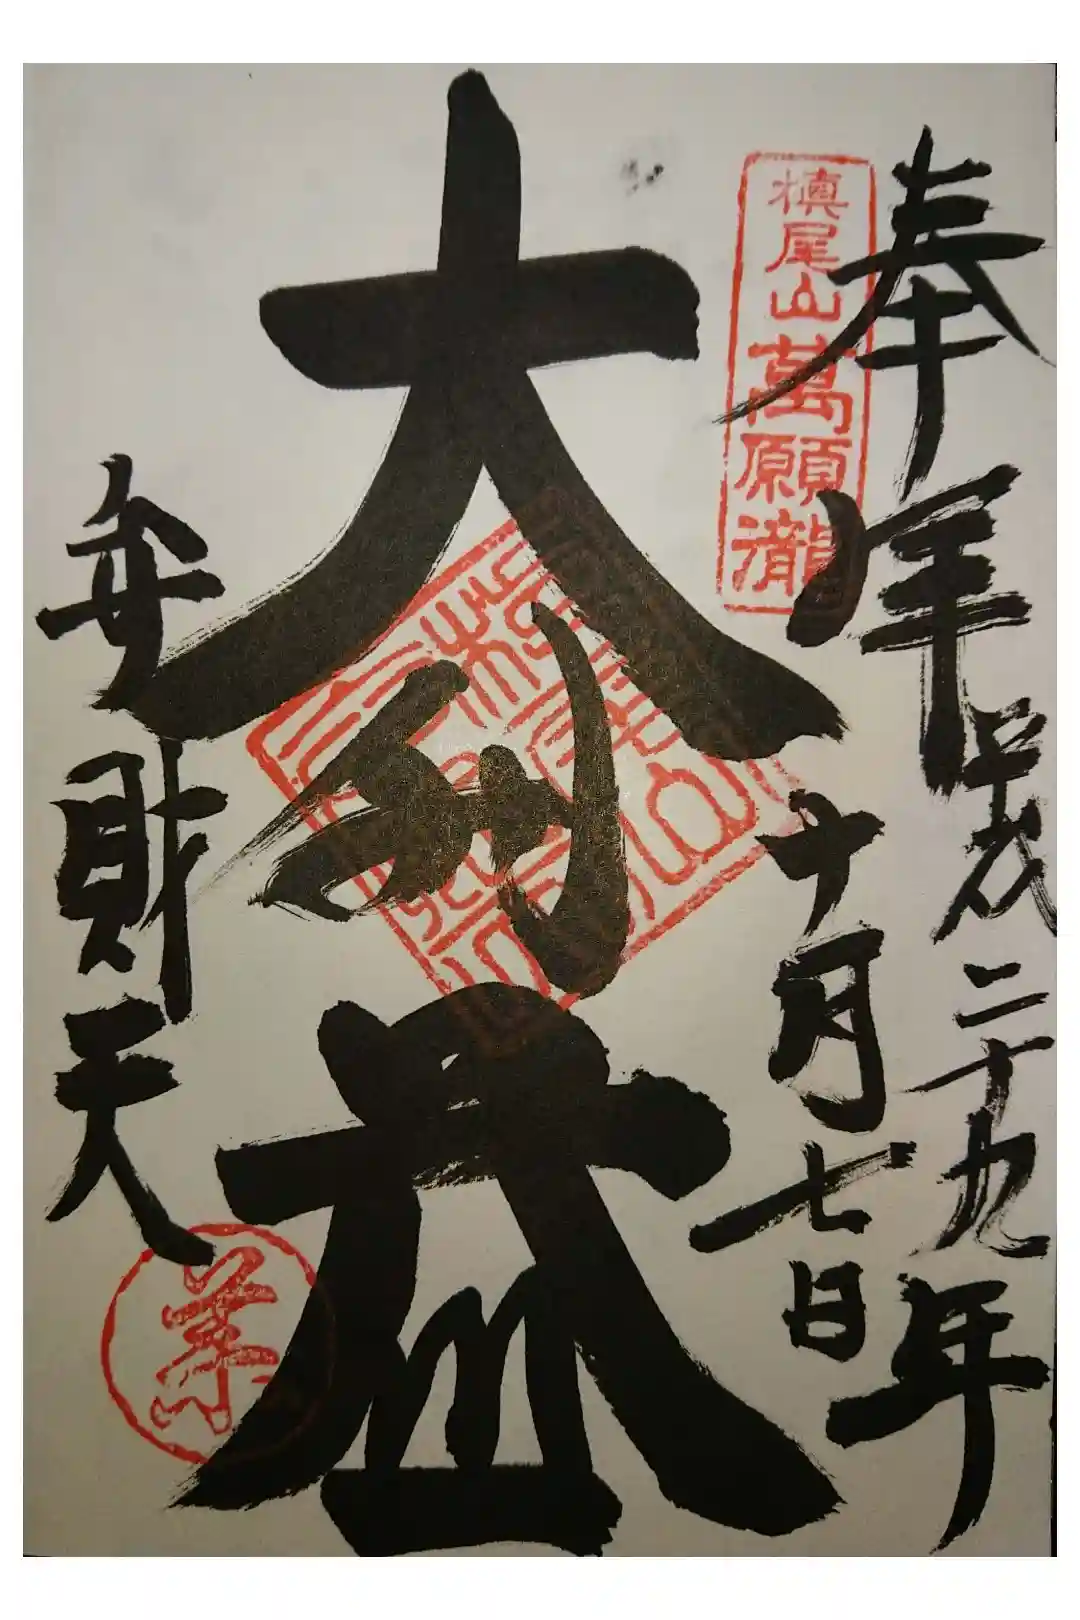 奉拝
平成二十九年
十月七日
槙尾山萬願瀧
大
益
弁財天